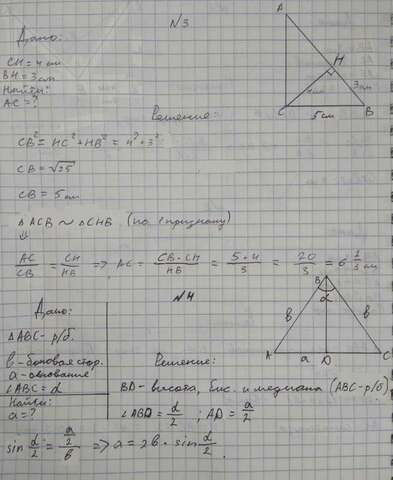 N3
Дано:
CH = 4 см
BH = 3 см
Найти:
AC = ?
A
H
4 см
3 см
C
5 см
B
Решение:
CB² = HC² + HB² = 4² + 3²
CB = √25
CB = 5 см
△ACB ~ △CHB (по 1 признаку)
⇓
AC/CB = CH/HB => AC = CB · CH/HB = 5 · 4/3 = 20/3 = 6 2/3 см
N4
Дано:
△ABC - р/б.
b - боковая стор.
a - основание
∠ABC = α
Найти:
a = ?
B
α
b
b
A
a
D
C
Решение:
BD - высота, бис. и медиана (ABC - р/б)
∠ABD = α/2 ; AD = a/2
sin α/2 = (a/2)/b => a = 2b · sin α/2 .